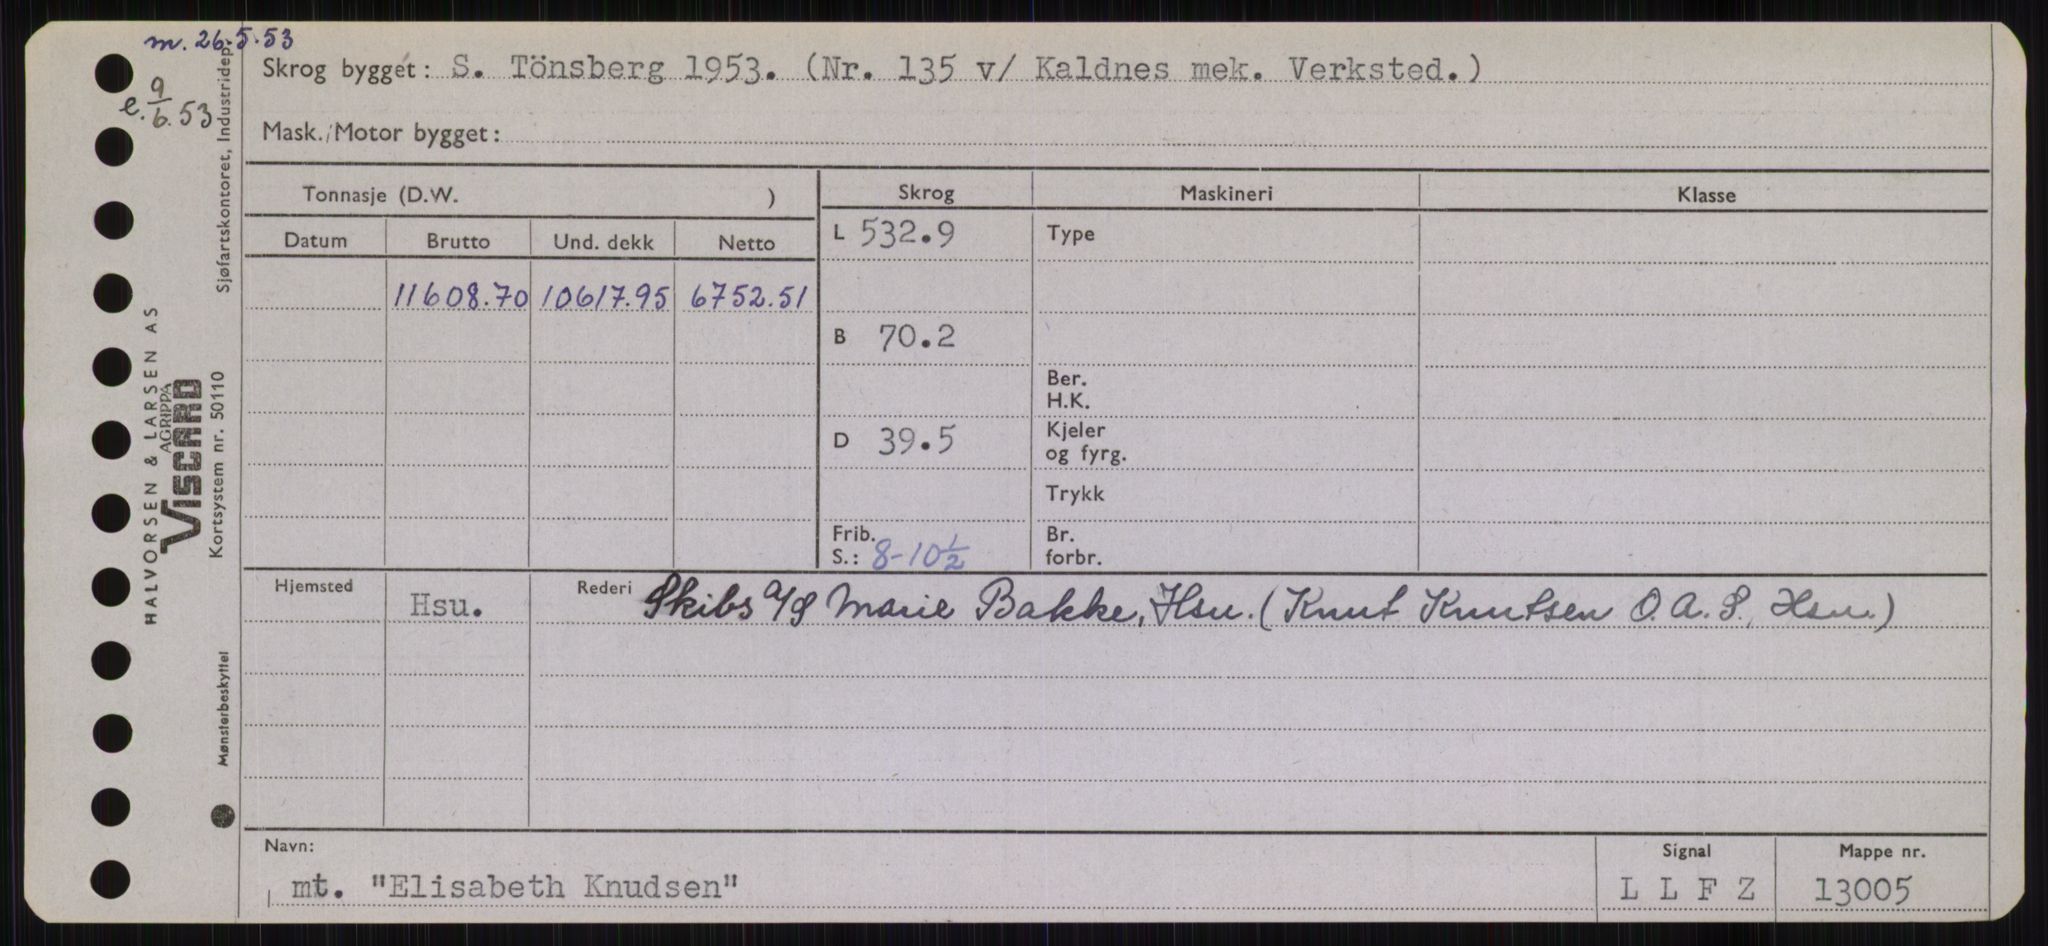 m. 26.5.53
e. 9/6.53
Skrog bygget: S. Tönsberg 1953. (Nr. 135 v/ Kaldnes mek. Verksted.)
Mask./Motor bygget:
Tonnasje (D.W. ) Skrog Maskineri Klasse
Datum Brutto Und. dekk Netto L 532.9 Type
11608.70 10617.95 6752.51
B 70.2
Ber.
H.K.
D 39.5 Kjeler
og fyrg.
Trykk
Frib. Br.
S.: 8-10½ forbr.
Hjemsted Hsu. Rederi Skibs a/s Marie Bakke, Hsu. (Knut Knutsen O.A.S., Hsu.)
Navn: Signal Mappe nr.
mt. "Elisabeth Knudsen" L L F Z 13005
HALVORSEN & LARSEN AS
AGRIPPA
VISCARD
Kortsystem nr. 50110
Sjøfartskontoret, Industridep.
Mønsterbeskyttet